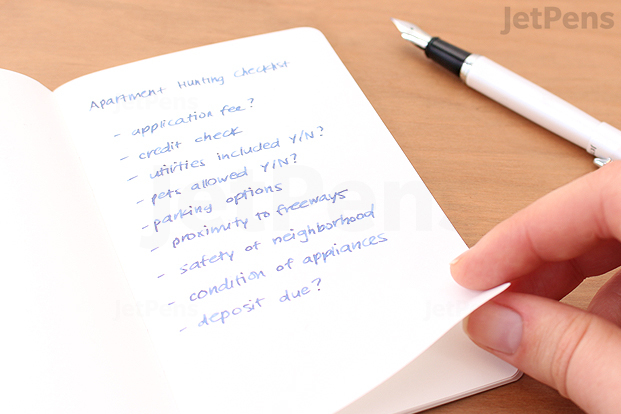 JetPens
Apartment Hunting Checklist
- application fee?
- credit check
- utilities included Y/N?
- pets allowed Y/N?
- parking options
- proximity to freeways
- safety of neighborhood
- condition of appliances
- deposit due?
JetPens
JetPens
JetPens
JetPens